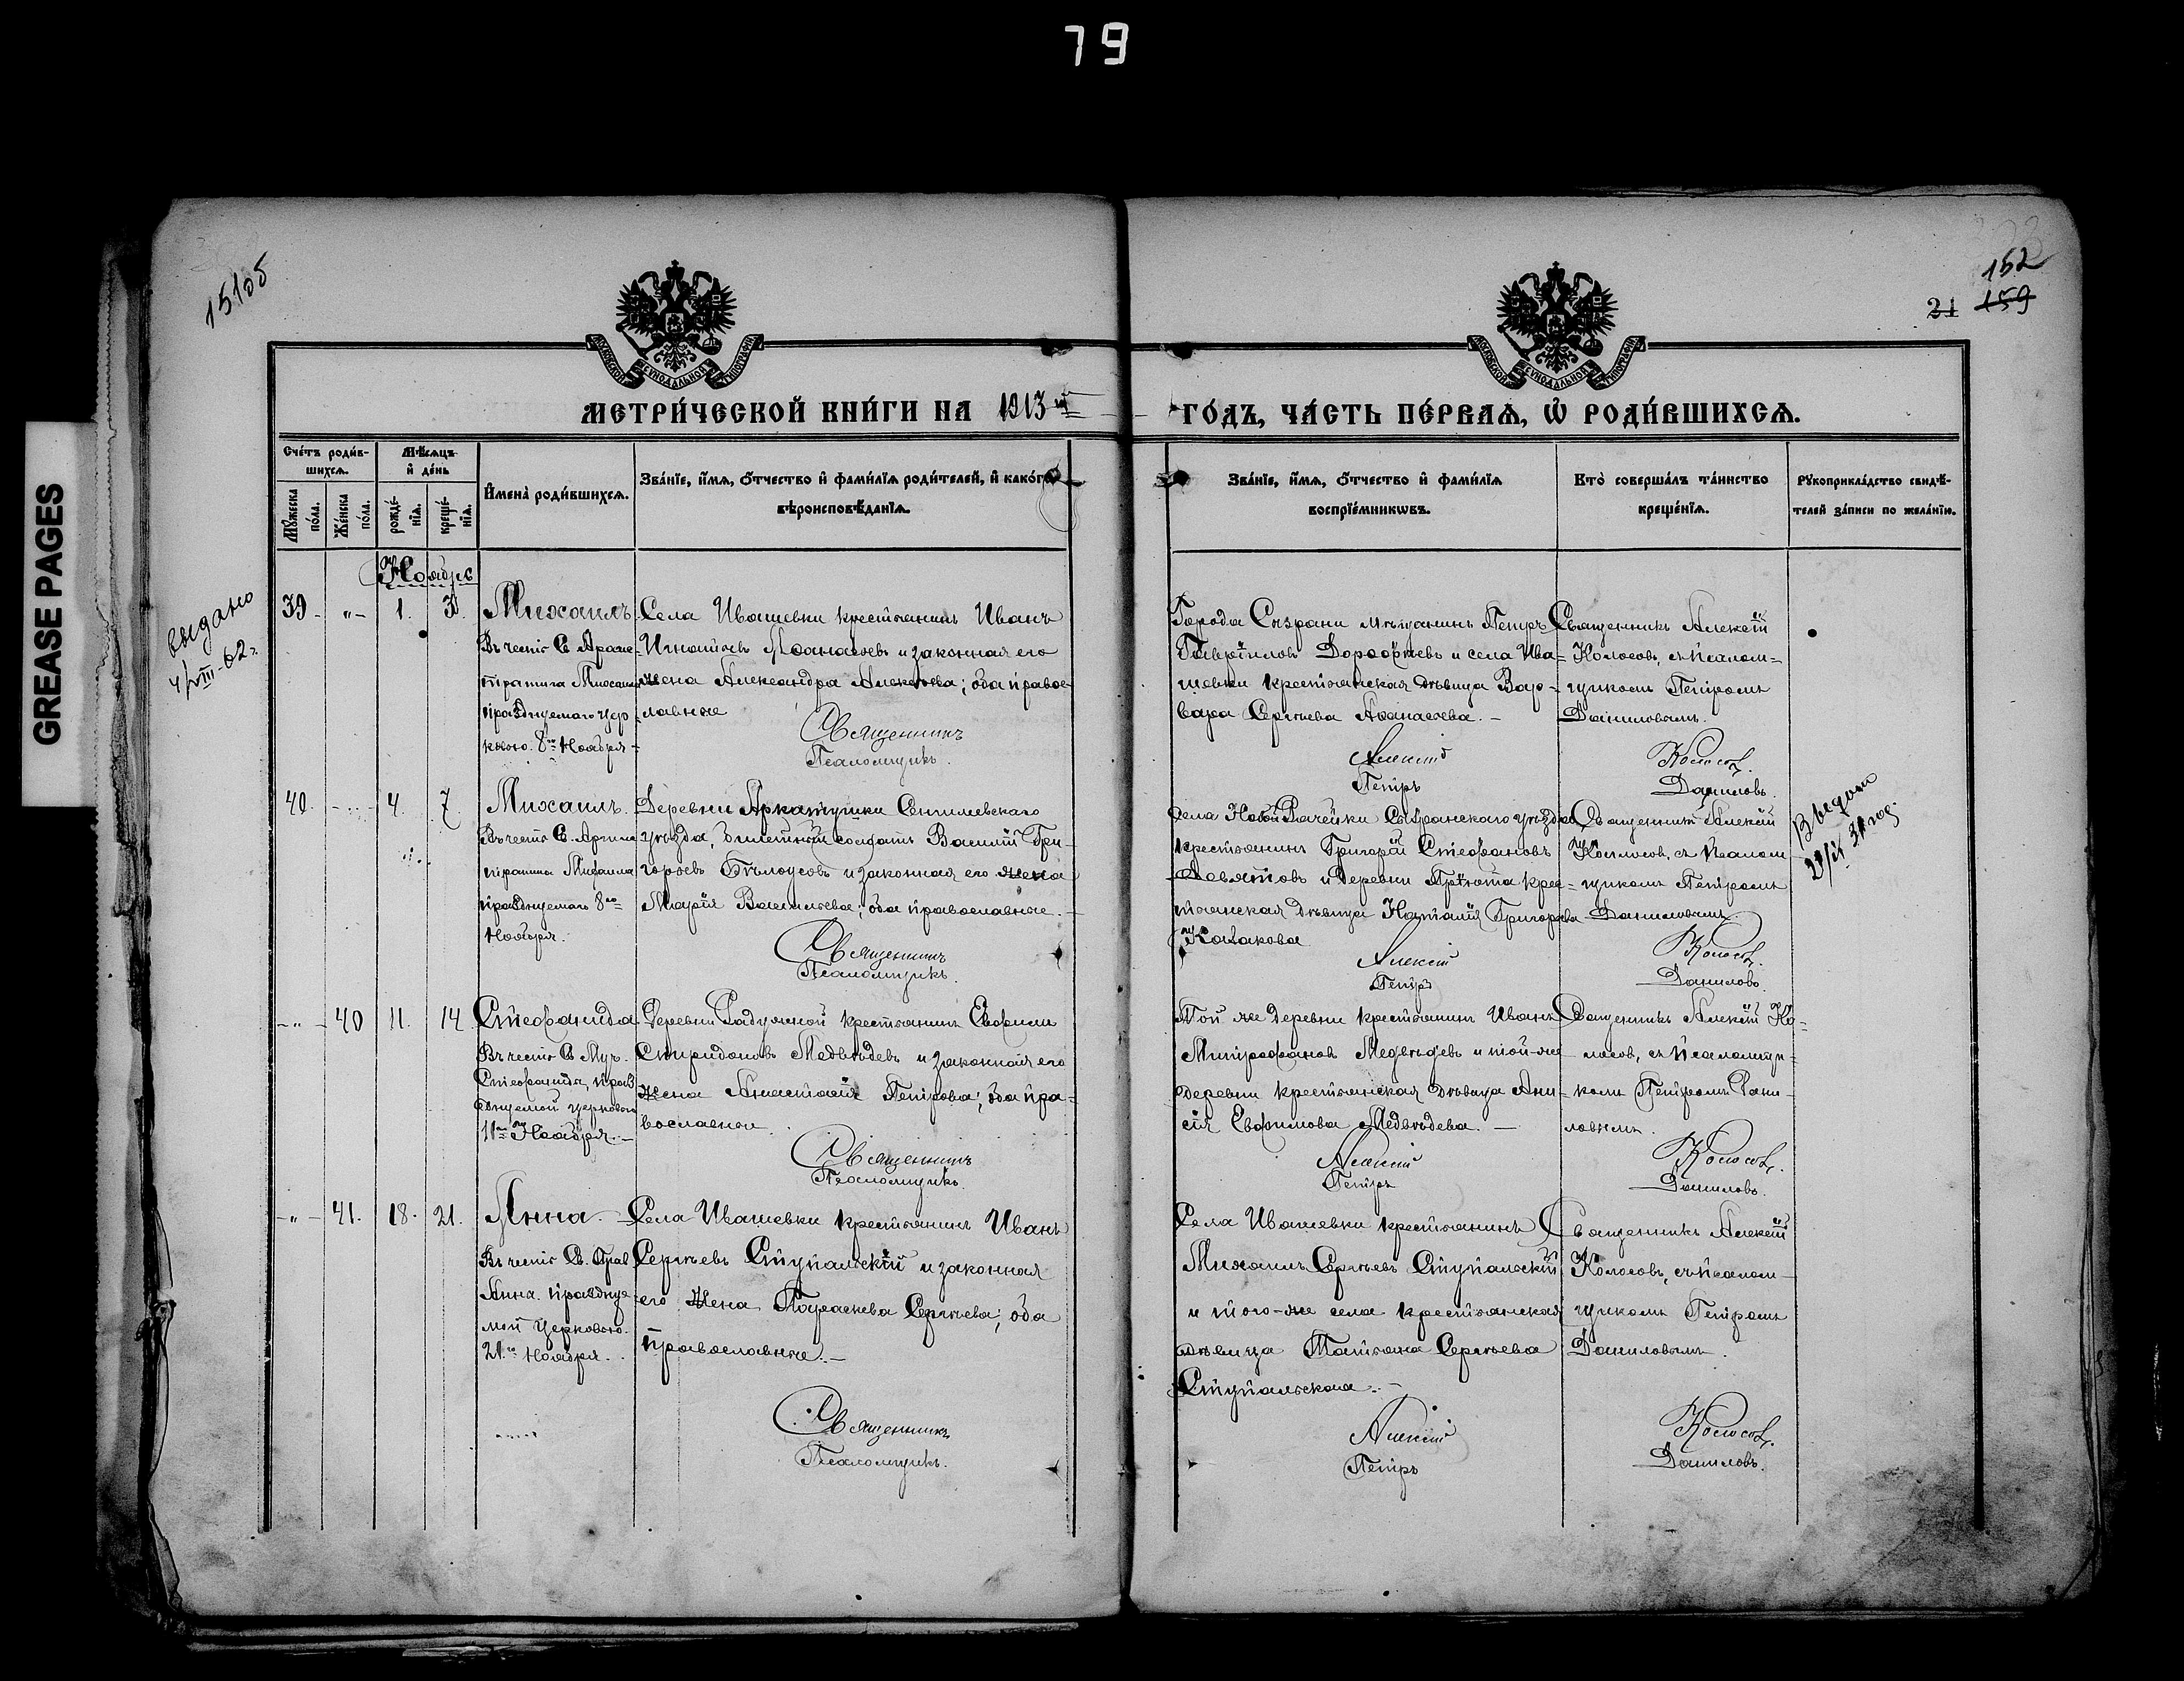 79
GREASE PAGES
15105
152
21 159
МЕТРИ́ЧЕСКОЙ КНИ́ГИ НА 1913 й
ГО́ДЪ, ЧА́СТЬ ПЕ́РВАѦ, Ѡ҆ РОДИ́ВШИХСѦ.
Сче́тъ роди́в-
шихсѧ.
Мѣ́сяцъ
и҆ де́нь
Мꙋ́жеска
по́ла.
Же́нска
по́ла.
рожде́-
нїѧ.
креще́-
нїѧ.
И҆мена̀ роди́вшихсѧ.
Зва́нїе, и҆́мѧ, о҆́тчество и҆ фами́лїѧ роди́телей, и҆ како́гѡ
вѣроисповѣ́данїѧ.
Зва́нїе, и҆́мѧ, о҆́тчество и҆ фами́лїѧ
воспрїе́мникѡвъ.
Кто̀ соверша́лъ та́инство
креще́нїѧ.
Рꙋкоприкла́дство свидѣ́-
телей за́писи по жела́нїю.
Ноябрь
выдано
4/VIII-62 г.
39 - "- 1. 3.
Михаилъ
Въ честь Св. Архи-
стратига Михаила
празднуемаго Цер-
ковью. 8го Ноября
Села Ивашевки крестьянинъ Иванъ
Игнатьевъ Афанасьевъ и законная его
жена Александра Алексѣева; оба право-
славные
Священникъ
Псаломщикъ.
Города Сызрани мѣщанинъ Петръ
Гавріиловъ Дорофѣевъ и села Ива-
шевки крестьянская дѣвица Вар-
вара Сергѣева Афанасьева. -
Алексій
Петръ
Священникъ Алексій
Колосовъ, съ псалом-
щикомъ Петромъ
Даниловымъ.
Колосовъ.
Даниловъ.
40. - " - 4. 7
Михаилъ.
Въ честь Св. Архис-
тратига Михаила
празднуемаго 8го
Ноября.
Деревни Аркатушки Сенгилевскаго
уѣзда, билетный солдатъ Василій Гри-
горьевъ Бѣлоусовъ и законная его жена
Марія Васильева; оба православные. -
Священникъ
Псаломщикъ.
Села Новой Рачейки Сызранскаго уѣзда
крестьянинъ Григорій Стефановъ
Девятовъ и деревни Пріюта крес-
тьянская дѣвица Наталія Григорьева
Казакова
Алексій
Петръ
Священникъ Алексій
Колосовъ, съ псалом-
щикомъ Петромъ
Даниловымъ.
Колосовъ.
Даниловъ.
- " - 40 11. 14.
Стефанида
Въ честь Св. Муч.
Стефаниды, праз
днуемой Церковью
11го Ноября. -
Деревни Радушной крестьянинъ Евфимій
Спиридоновъ Медвѣдевъ и законная его
жена Анастасія Петрова; оба пра-
вославные.
Священникъ
Псаломщикъ.
Той же деревни крестьянинъ Иванъ
Митрофановъ Медвѣдевъ и той-же
деревни крестьянская дѣвица Ани-
сія Евфимова Медвѣдева. -
Алексій
Петръ
Священникъ Алексій Ко-
лосовъ, съ псаломщи-
комъ Петромъ Дани-
ловымъ.
Колосовъ.
Даниловъ.
- " - 41. 18. 21.
Анна.
Въ честь Св. Прав
Анны. празднуе-
мой Церковью.
21го Ноября.
Села Ивашевки крестьянинъ Иванъ
Сергѣевъ Ступальскій и законная
его жена Параскева Сергѣева; оба
православные. -
Священникъ
Псаломщикъ.
Села Ивашевки крестьянинъ
Михаилъ Сергѣевъ Ступальскій
и того-же села крестьянская
дѣвица Татьяна Сергѣева
Ступальская. -
Алексій
Петръ
Священникъ Алексій
Колосовъ, съ псалом-
щикомъ Петромъ
Даниловымъ.
Колосовъ.
Даниловъ.